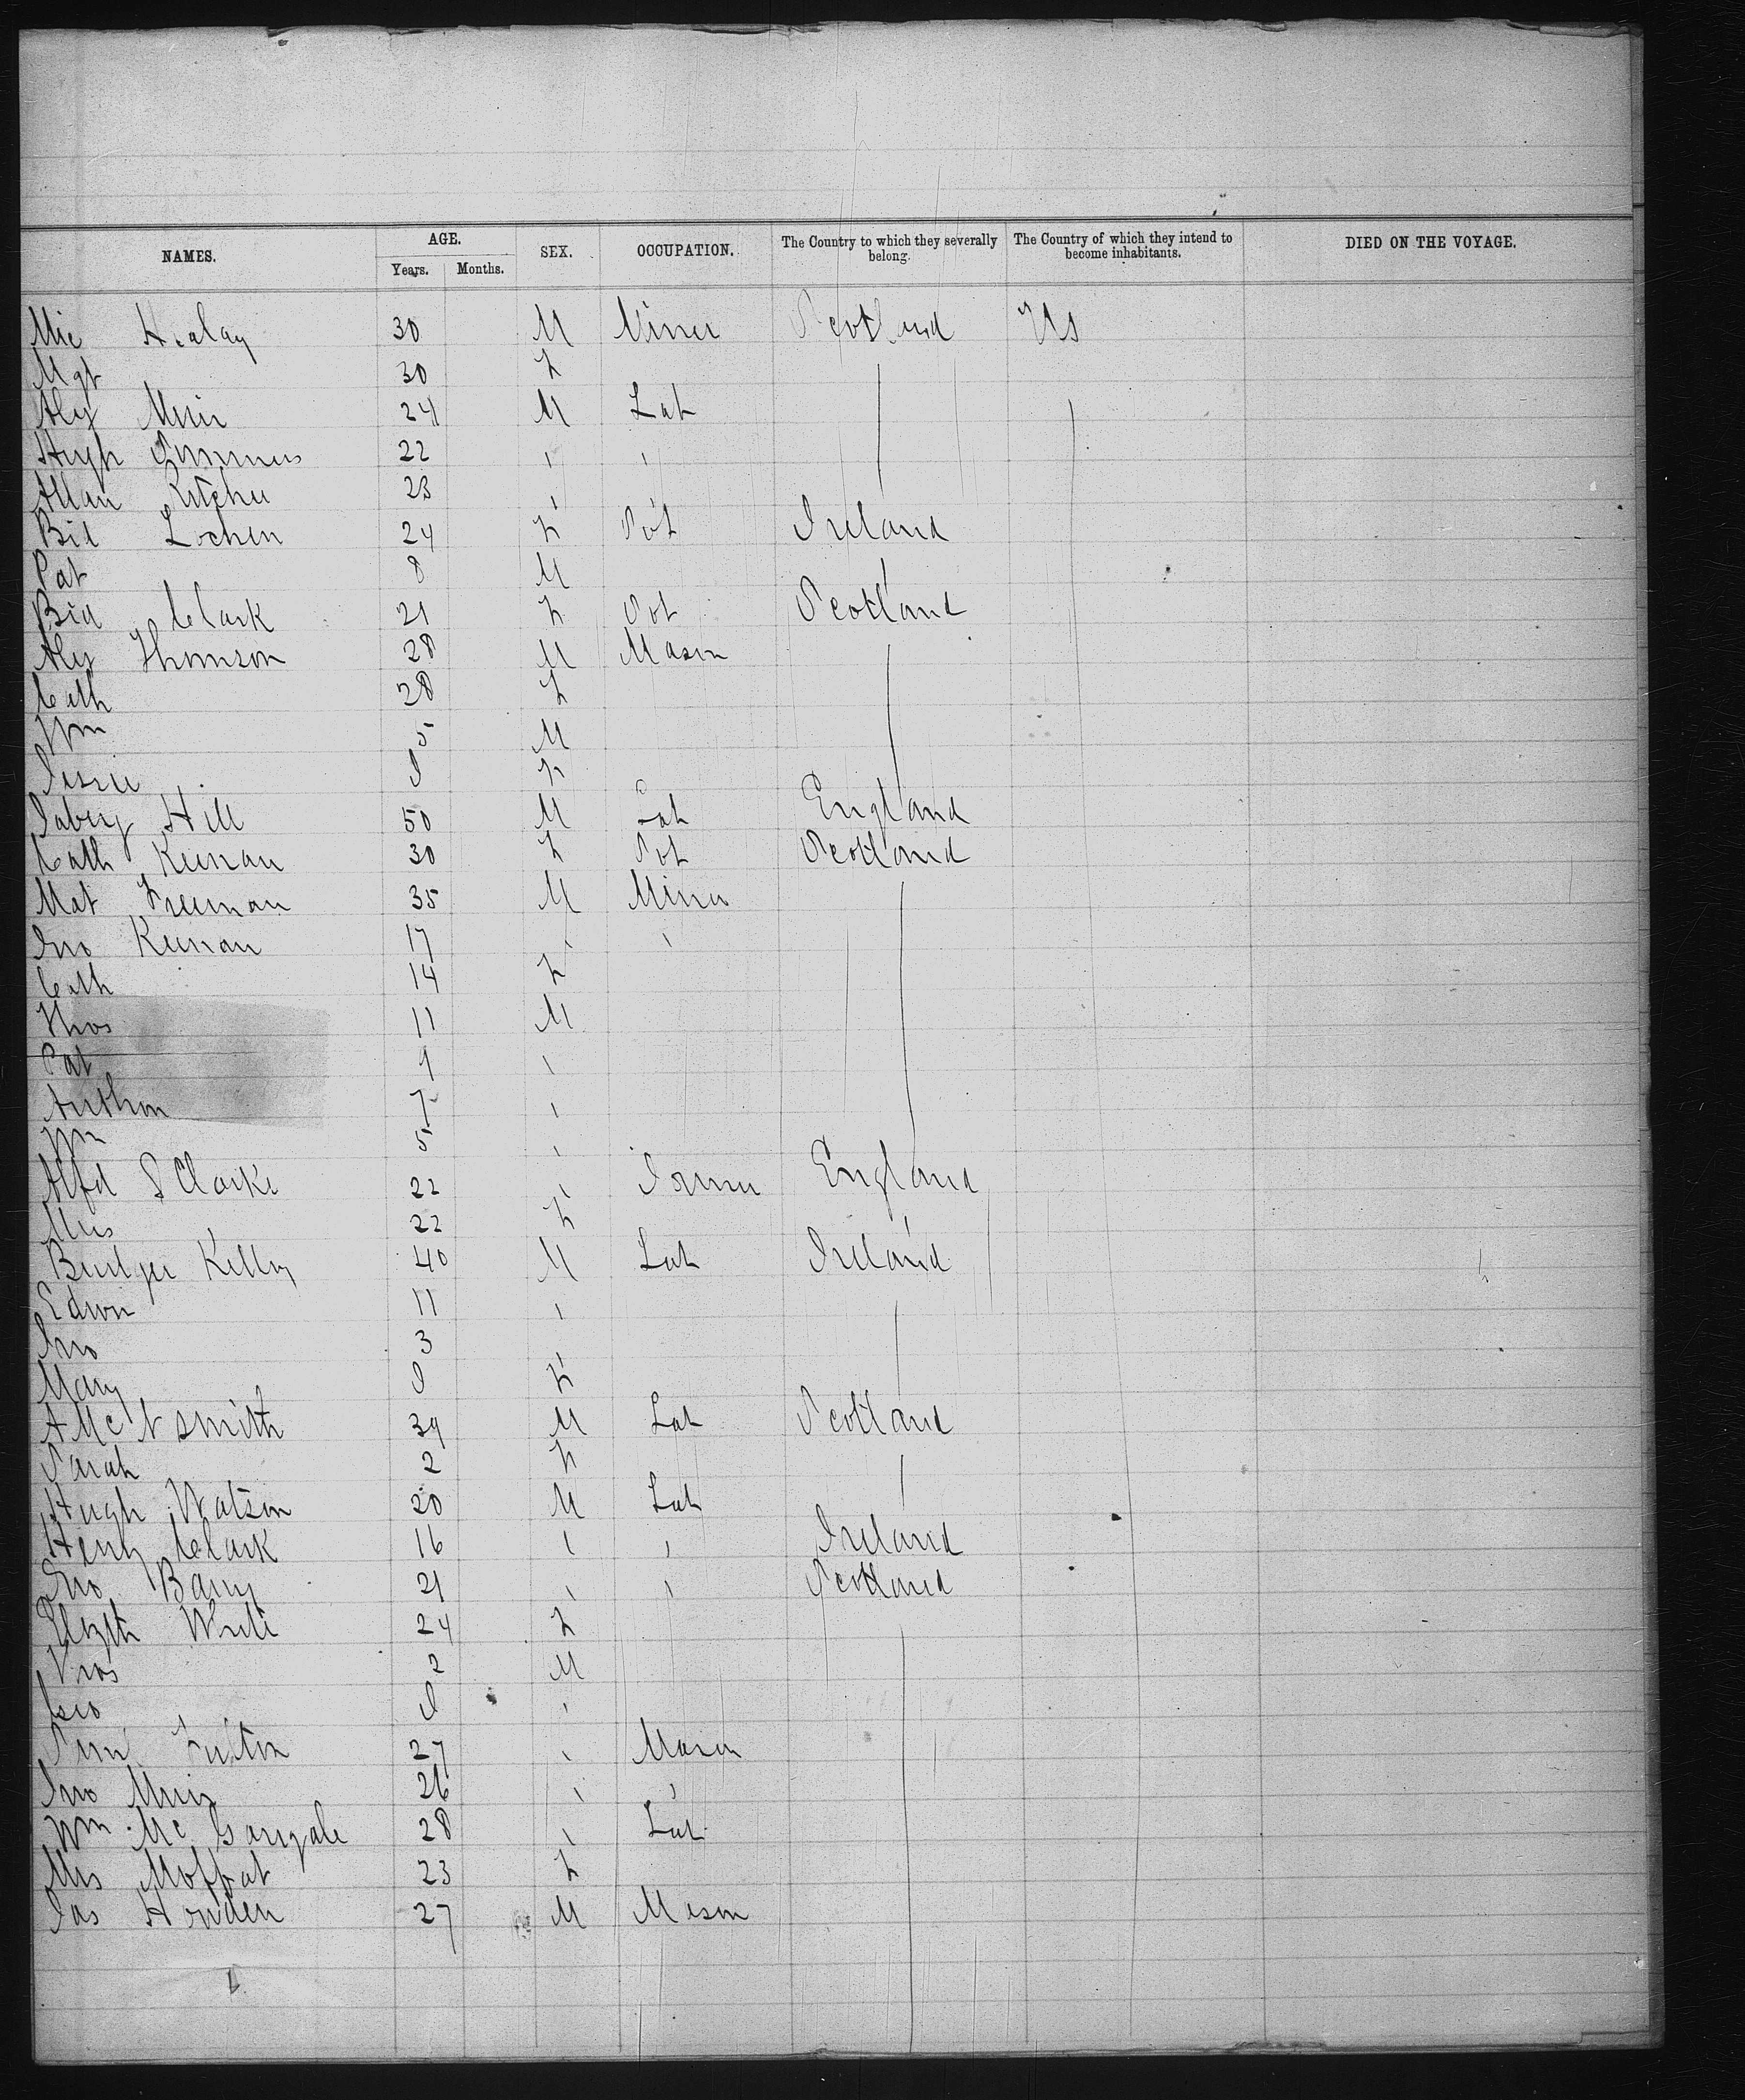 NAMES. AGE. SEX. OCCUPATION. The Country to which they severally belong. The Country of which they intend to become inhabitants. DIED ON THE VOYAGE.
Years. Months.
Mic Healay 30 M Miner Scotland Us
Mgt 30 F
Alex Muir 24 M Lab
Hugh 22 " "
Allan 23 "
Bid 24 F Ireland
Pat 8 M
Bid Clark 21 F Scotland
Alex Thomson 28 M Mason
Cath 28 F
Wm 5 M
Jessie F
Hill 50 M Lab England
Cath Keenan 30 F Scotland
Mat Freeman 35 M Miner
Jno Keenan 17 " "
Cath 14 F
Thos 11 M
Pat 9 "
Anthon 7 "
Wm 5 "
Alfd S Clarke 22 " England
Mrs 22 F
Kelly 40 M Lab Ireland
Edwin 11 "
Jno 3 "
Mary F
Smith 39 M Lab Scotland
Sarah 2 F
Hugh Watson 20 M Lab
Henry Clark 16 " " Ireland
Jno Barry 21 " " Scotland
Elizth 24 F
Thos 2 M
Geo "
Fulton 27 " Mason
Jno Muir 26 " "
Wm Mc 28 " Lab
Mrs Moffat 23 F
Jas Howden 27 M Mason